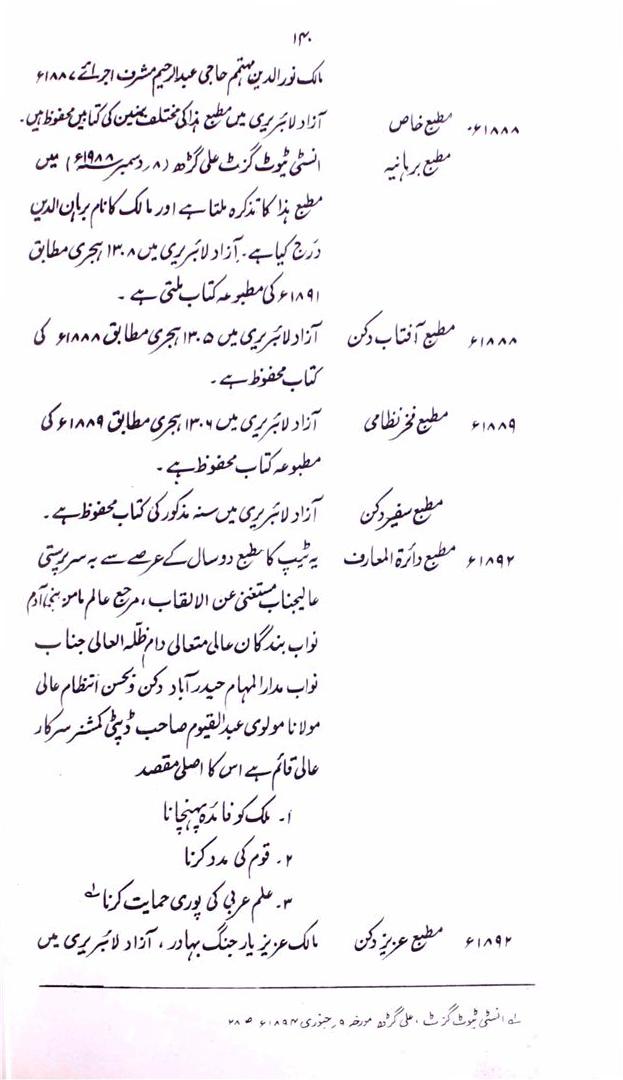 ۱۴۰
مالک نورالدین مہتمم حاجی عبدالرحیم مشرف اجرائے ۱۸۸۷ء
۱۸۸۸ء۔ مطبع خاص آزاد لائبریری میں مطبع ہذا کی مختلف سنین کی کتابیں محفوظ ہیں۔
مطبع برہانیہ انسٹی ٹیوٹ گزٹ علی گڑھ (۸ر دسمبر ۱۹۸۸ء) میں
مطبع ہذا کا تذکرہ ملتا ہے اور مالک کا نام برہان الدین
درج کیا ہے۔ آزاد لائبریری میں ۱۳۰۸ ہجری مطابق
۱۸۹۱ء کی مطبوعہ کتاب ملتی ہے۔
۱۸۸۸ء مطبع آفتاب دکن آزاد لائبریری میں ۱۳۰۵ ہجری مطابق ۱۸۸۸ء کی
کتاب محفوظ ہے۔
۱۸۸۹ء مطبع فخر نظامی آزاد لائبریری میں ۱۳۰۶ ہجری مطابق ۱۸۸۹ء کی
مطبوعہ کتاب محفوظ ہے۔
مطبع سفیر دکن آزاد لائبریری میں سنہ مذکور کی کتاب محفوظ ہے۔
۱۸۹۲ء مطبع دائرۃ المعارف یہ ٹیپ کا مطبع دو سال کے عرصے سے بہ سرپرستی
عالیجناب مستغنیٰ عن الالقاب، مرجع عالم
نواب بندگان عالی متعالی دام ظلہ العالی جناب
نواب مدارالمہام حیدرآباد دکن و بحسن انتظام عالی
مولانا مولوی عبدالقیوم صاحب ڈپٹی کمشنر سرکار
عالی قائم ہے اس کا اصلی مقصد
۱۔ ملک کو فائدہ پہنچانا
۲۔ قوم کی مدد کرنا
۳۔ علم عربی کی پوری حمایت کرنا لے
۱۸۹۲ء مطبع عزیز دکن مالک عزیز یار جنگ بہادر، آزاد لائبریری میں
لے انسٹی ٹیوٹ گزٹ، علی گڑھ مورخہ ۹ر جنوری ۱۸۹۴ء ص ۲۸